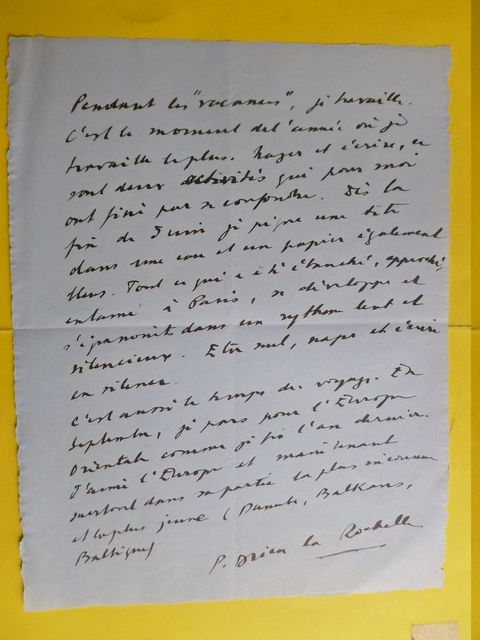 Pendant les "vacances", je travaille.
C'est le moment de l'année où je
travaille le plus. Nager et écrire, ce
sont deux activités qui pour moi
ont fini par se confondre. Dès la
fin de Juin je pique une tête
dans une eau et un papier également
bleus. Tout ce qui a été ébauché, approché,
entamé à Paris, se développe et
s'épanouit dans un rythme lent et
silencieux. Etre seul, nager et écrire
en silence.
C'est aussi le temps des voyages. En
Septembre, je pars pour l'Europe
Orientale comme je fis l'an dernier.
J'aime l'Europe et maintenant
surtout dans sa partie la plus inconnue
et la plus jeune (Danube, Balkans,
Baltique)
P. Drieu la Rochelle